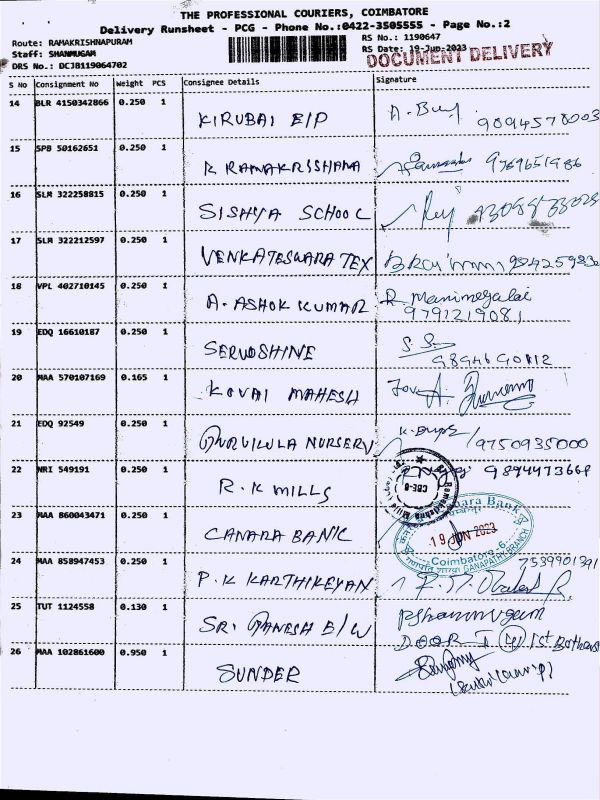 THE PROFESSIONAL COURIERS, COIMBATORE
Delivery Runsheet - PCG - Phone No.:0422-3505555 - Page No.:2
Route: RAMAKRISHNAPURAM RS No.: 1190647
Staff: SHANMUGAM RS Date: 19-Jun-2023
DRS No.: DCJB119064702 DOCUMENT DELIVERY
S No Consignment No Weight PCS Consignee Details Signature
14 BLR 4150342866 0.250 1 KIRUBAI E/P
15 SPB 50162651 0.250 1 R RAMAKRISHANA 9769651986
16 SLM 322258815 0.250 1 SISHYA SCHOOL
17 SLM 322212597 0.250 1 VENKATESWARA TEX
18 VPL 402710145 0.250 1 A. ASHOK KUMAR R Manimegalai
9791219081
19 EDQ 16610187 0.250 1 SERVOSHINE
9894690112
20 MAA 570107169 0.165 1 KOVAI MAHESH
21 EDQ 92549 0.250 1 NURSERY 9750935000
22 NRI 549191 0.250 1 R.K MILLS
23 MAA 860043471 0.250 1 CANARA BANK
19 JUN 2023
Coimbatore-6
GANAPATHI BRANCH
24 MAA 858947453 0.250 1 P.K KARTHIKEYAN 7539901391
25 TUT 1124558 0.130 1 SRI GANESH E/W
26 MAA 102861600 0.950 1 SUNDER